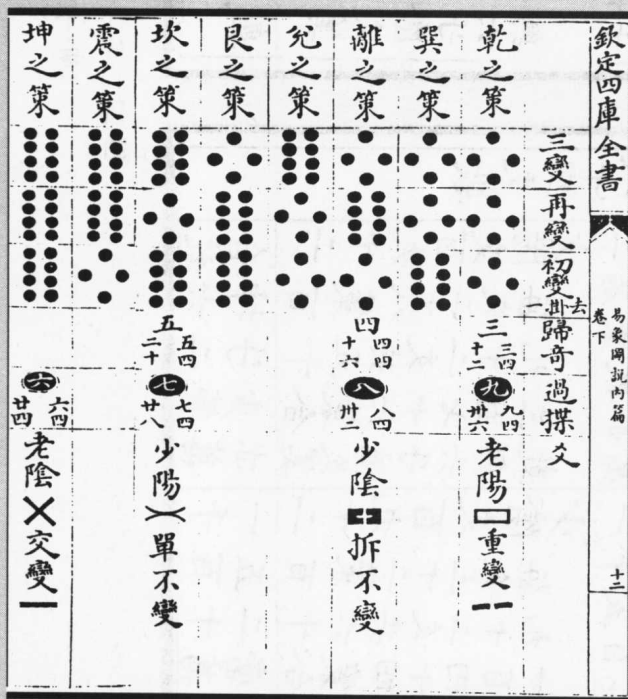 欽定四庫全書
易象圖說內篇
卷下
十三
三變 再變 初變 去掛 歸奇 過揲 爻
乾之策 三 三四 十二 九 九四 卅六 老陽 重變
巽之策
離之策 四 四四 十六 八 四 卅二 少陰 拆不變
兌之策
艮之策
坎之策 五 五四 二十 七 七四 廿八 少陽 單不變
震之策
坤之策 六 六四 廿四 老陰 交變